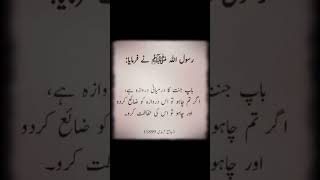 رسول اللہ ﷺ نے فرمایا:
باپ جنت کا درمیانی دروازہ ہے،
اگر تم چاہو تو اس دروازہ کو ضائع کردو
اور چاہو تو اس کی حفاظت کرو۔